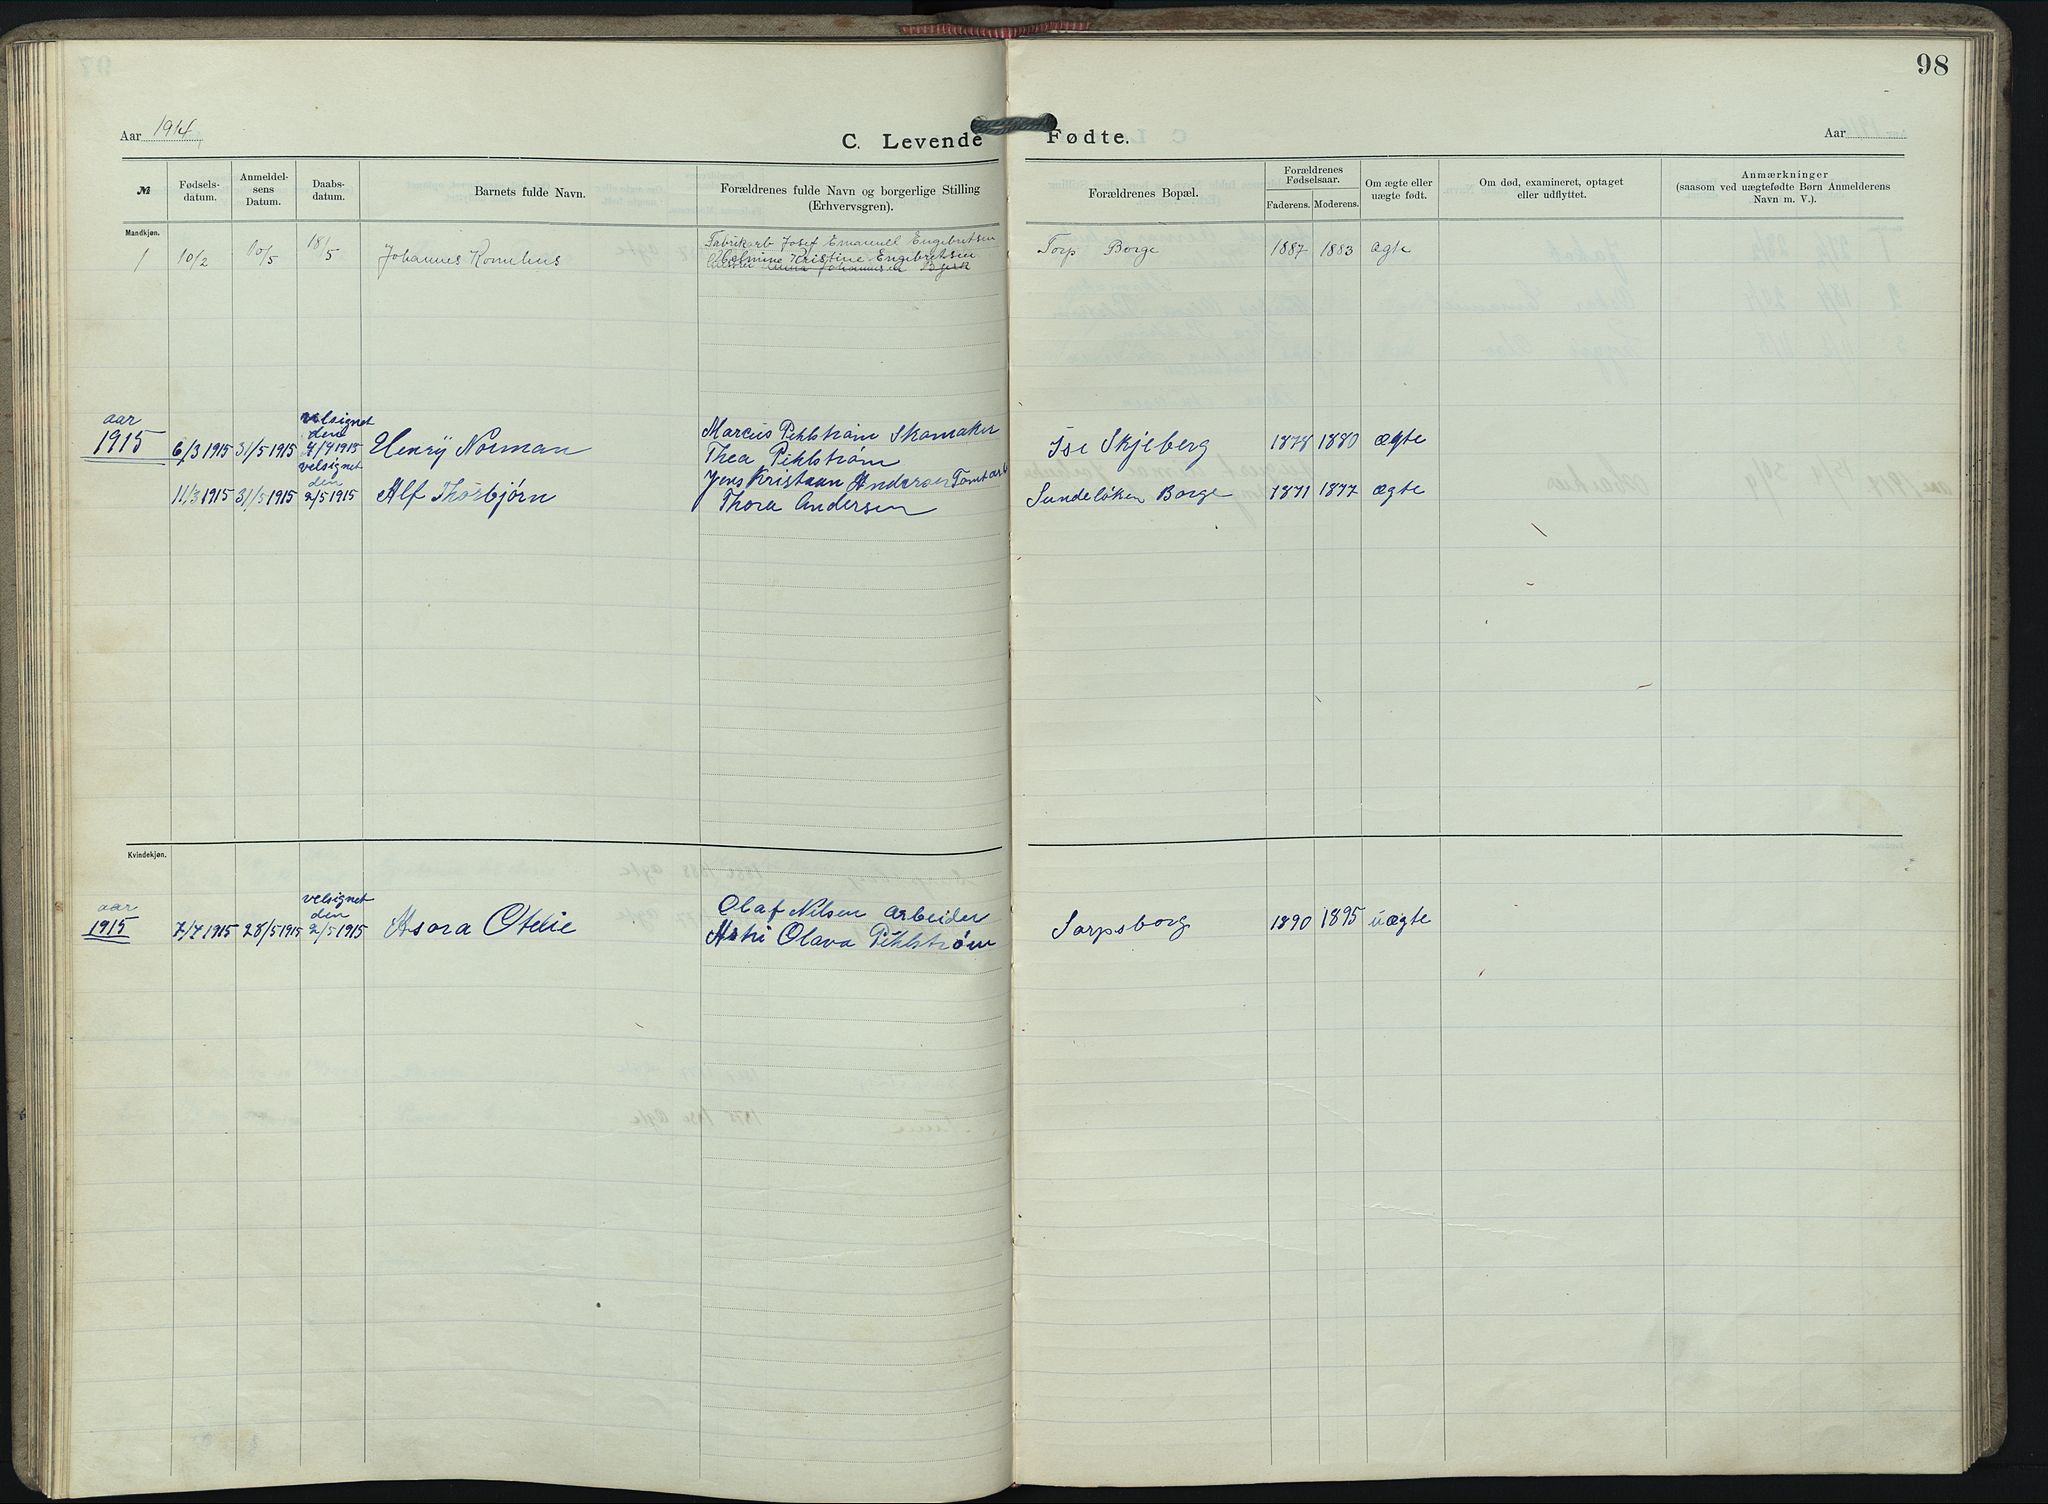 98
Aar 1914
C. Levende Fødte.
Aar
№
Fødselsdatum.
Anmeldelsens Datum.
Daabsdatum.
Barnets fulde Navn.
Forældrenes fulde Navn og borgerlige Stilling (Erhvervsgren).
Forældrenes Bopæl.
Forældrenes Fødselsaar.
Faderens. Moderens.
Om ægte eller uægte født.
Om død, examineret, optaget eller udflyttet.
Anmærkninger (saasom ved uægtefødte Børn Anmelderens Navn m. V.).
Mandkjøn.
1 10/2 10/5 18/5 Johannes Kornelius Fabrikarb Josef Emanuel Engebretsen Torp Borge 1887 1883 ægte
Kristine Engebretsen
aar velsignet
1915 den
6/3 1915 31/5 1915 4/4 1915 Henrÿ Norman Marcus Pihlstrøm Skomaker Ise Skjeberg 1878 1880 ægte
Thea Pihlstrøm
velsignet den
11/3 1915 31/5 1915 2/5 1915 Alf Thorbjørn Jens Kristian Andersen Tomtarb Sundeløken Borge 1871 1877 ægte
Thora Andersen
Kvindekjøn.
aar velsignet
1915 den
7/7 1915 28/5 1915 2/5 1915 Asora Otelie Olaf Nilsen arbeider Sarpsborg 1890 1895 uægte
Astri Olava Pihlstrøm